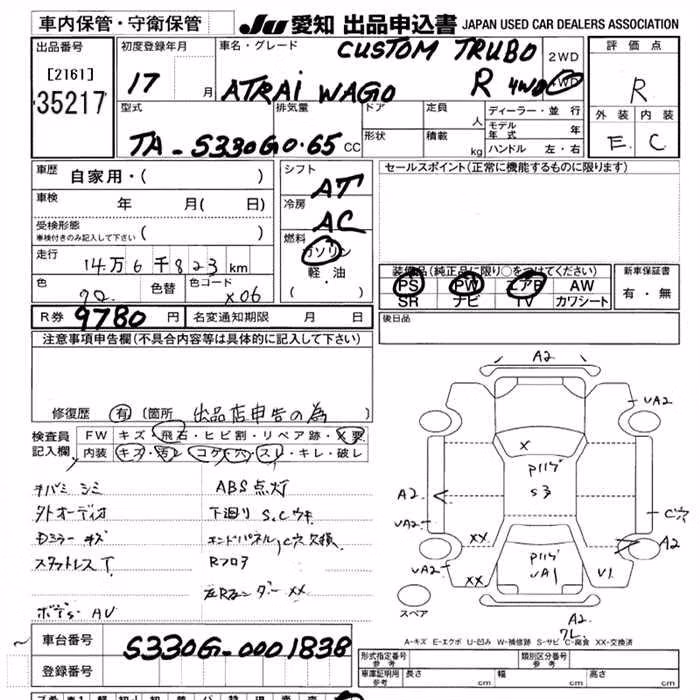 車内保管・守衛保管 JU 愛知 出品申込書 JAPAN USED CAR DEALERS ASSOCIATION
出品番号 初度登録年月 車名・グレード CUSTOM TRUBO 2WD 評価点
[2161] 17 月 ATRAI WAGO R 4WD 4WD R
35217 外装 内装
型式 排気量 ドア 定員 人 ディーラー・並行 E C
TA-S330G 0.65 CC 形状 積載 kg モデル年式 年
ハンドル 左・右
車歴 自家用・( ) シフト AT セールスポイント(正常に機能するものに限ります)
車検 年 月( 日) 冷房 AC
受検形態
車検付きのみ記入して下さい ( ) 燃料 ガソリン
走行 14万6千823km 軽・油 装備品(純正品に限り○をつけてください) 新車保証書
色 色替 色コード X06 ( ) PS PW エアB AW 有・無
SR ナビ TV カワシート
R券 9780 円 名変通知期限 月 日 後日品
注意事項申告欄(不具合内容等は具体的に記入して下さい)
修復歴 有 (箇所 出品店申告の為 )
検査員 FW キズ・飛石・ヒビ割・リペア跡・X要
記入欄 内装 キズ・汚レ・コゲ・穴・スレ・キレ・破レ
ABS点灯
外オーディオ 下廻り S.Cウキ
Dミラーキズ エンドパネル,C穴欠損
スタットレスT Rフロア
XX
ボデー AU
A2
UA2
X
P117"
S3
A2
UA2
C穴
XX
A2
UA2
XX
P117"
UA1
U1
スペア
A2
A-キズ E-エクボ U-凹み W-補修跡 S-サビ C-腐食 XX-交換済
車台番号 S330G-0001838
登録番号
形式指定番号 参考 類別区分番号 参考
車庫証明用 参考 長さ cm 幅 cm 高さ cm